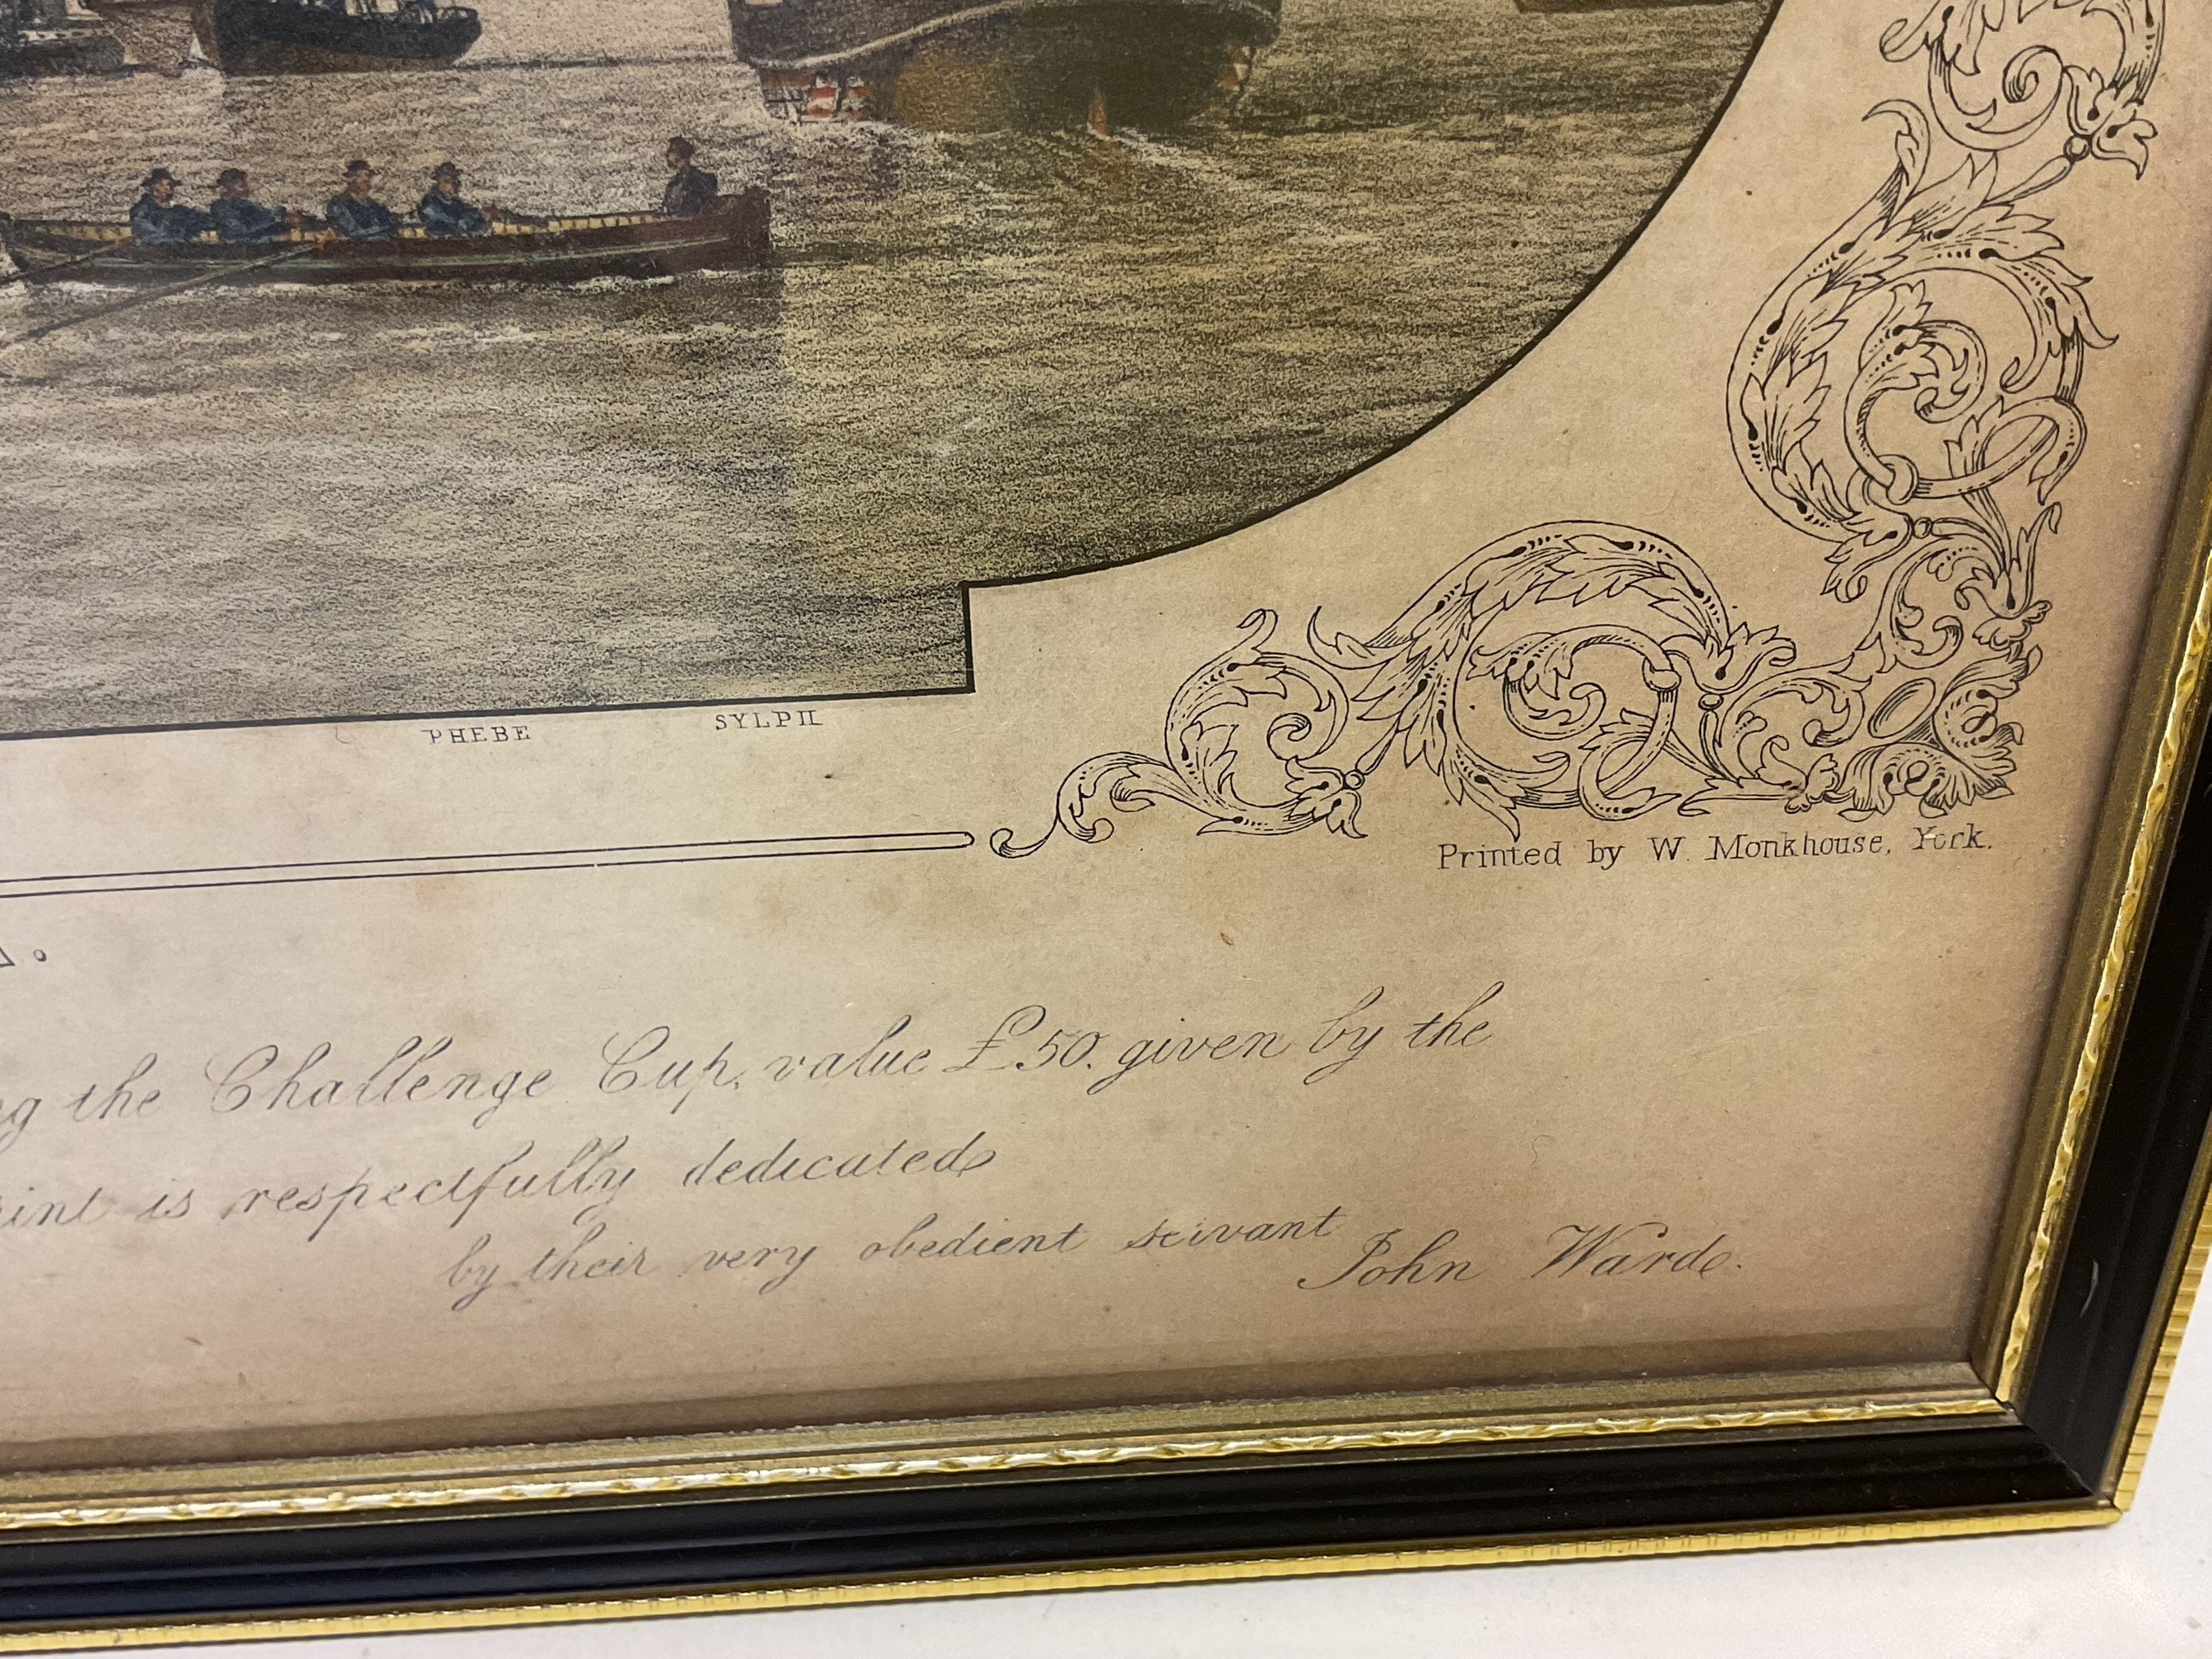 PHEBE SYLPH
Printed by W. Monkhouse, York.
the Challenge Cup, value £50. given by the
is respectfully dedicated
by their very obedient servant John Warde.